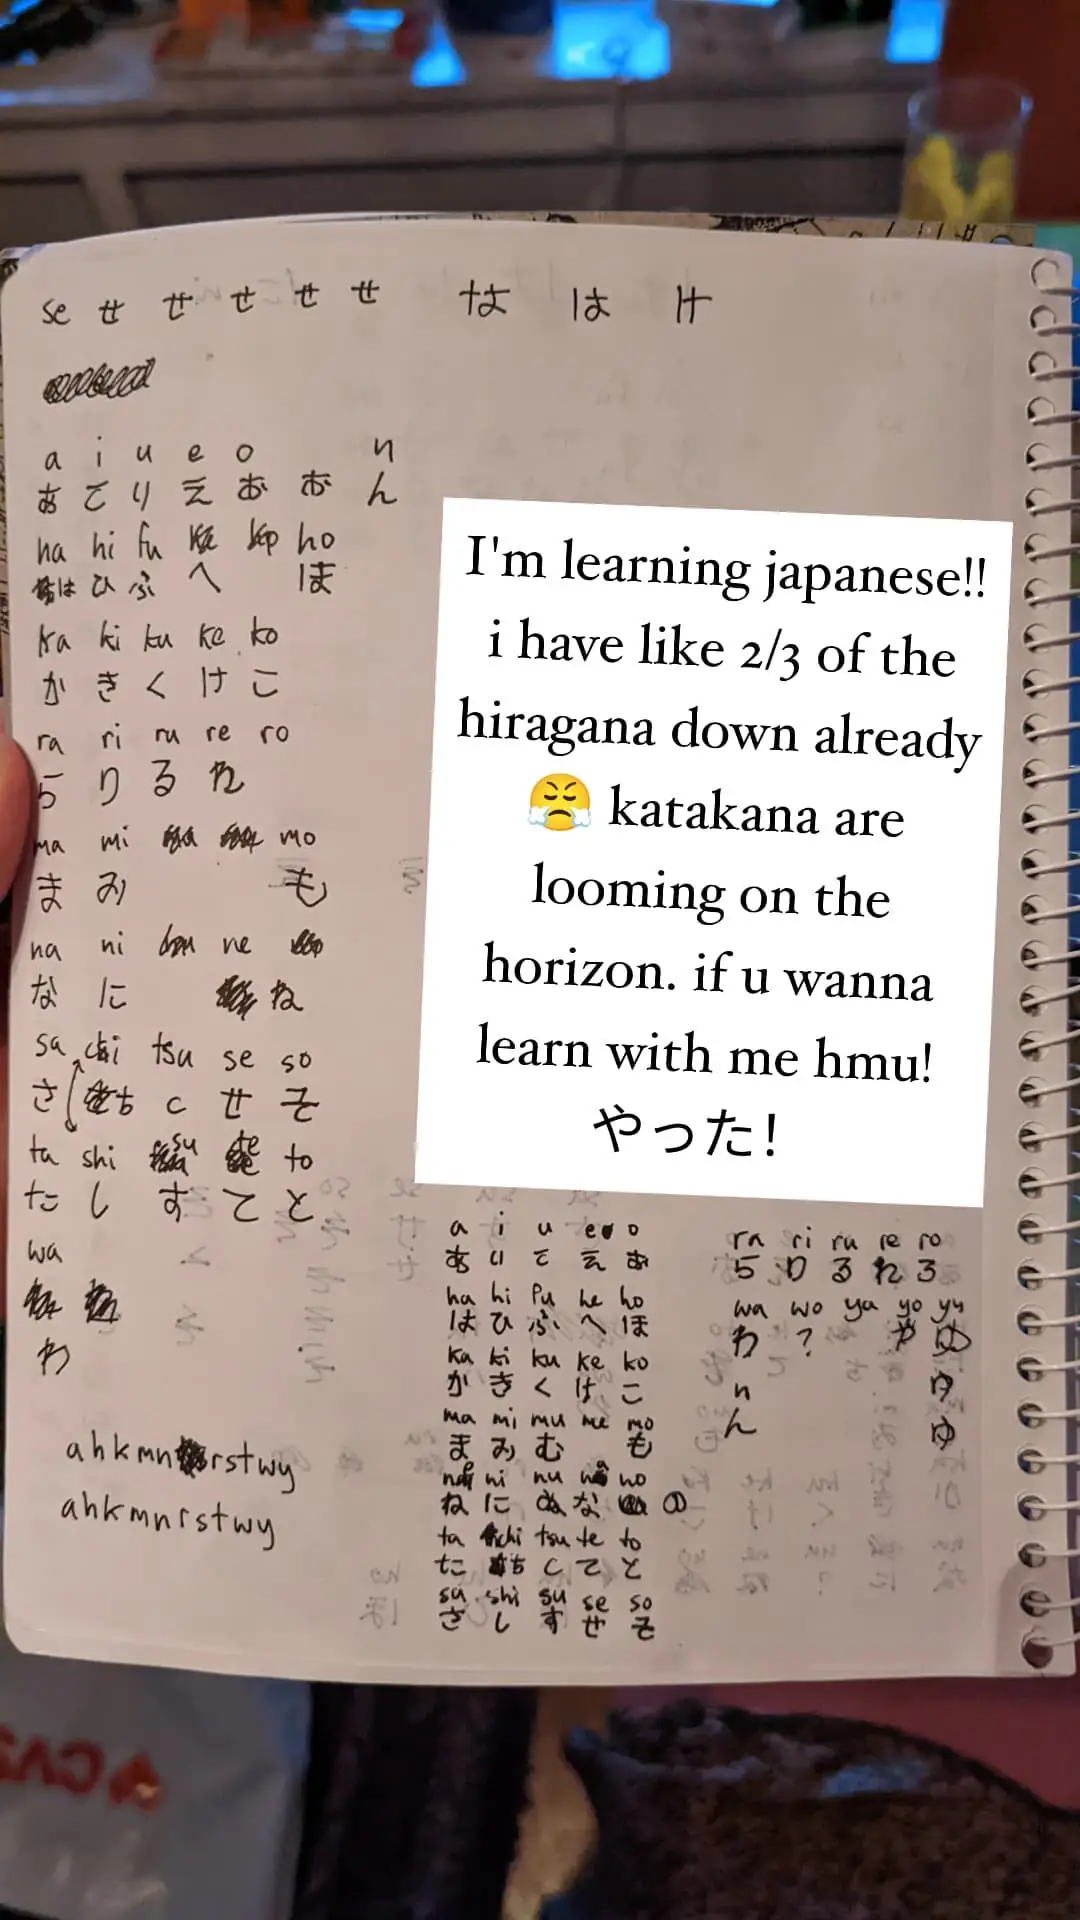 se せ せ せ せ せ な は け
a i u e o n
あ て り え お お ん
ha hi fu ho
は ひ ふ へ ほ
ka ki ku ke ko
か き く け こ
ra ri ru re ro
ら り る れ
ma mi mo
ま み も
na ni ne
な に ね
sa chi tsu se so
さ ち c せ そ
ta shi su te to
た し す て と
wa
わ
a h k m n r s t w y
a h k m n r s t w y
I'm learning japanese!!
i have like 2/3 of the
hiragana down already
😤 katakana are
looming on the
horizon. if u wanna
learn with me hmu!
やった!
a i u e o
あ い て え お
ha hi fu he ho
は ひ ふ へ ほ
ka ki ku ke ko
か き く け こ
ma mi mu me mo
ま み む も
ni nu no
ね に ぬ な の
ta chi tsu te to
た ち c て と
sa shi su se so
さ し す せ そ
ra ri ru re ro
ら り る れ ろ
wa wo ya yo yu
わ ? や ゆ
n ゆ
ん ゆ